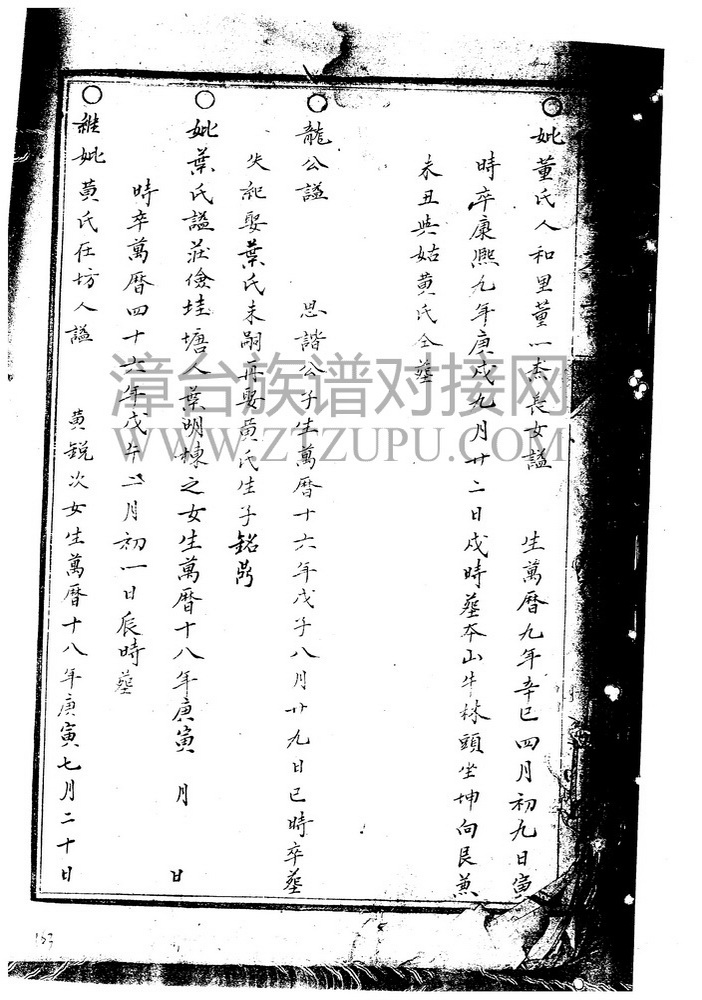 ○妣董氏人和里董一杰長女謚 生萬曆九年辛巳四月初九日寅
時卒康熙九年庚戌九月廿二日戌時塟本山牛林頭坐坤向艮兼
未丑與姑黃氏仝塟
○龍公謚 思諧公子生萬曆十六年戊子八月廿九日巳時卒塟
失紀娶葉氏未嗣再娶黃氏生子銘鼎
○妣葉氏謚莊儉垟塘人葉明棟之女生萬曆十八年庚寅 月 日
時卒萬曆四十六年戊午二月初一日辰時塟
○継妣黃氏在坊人謚 黃銳次女生萬曆十八年庚寅七月二十日
漳台族谱对接网
WWW.ZTZUPU.COM
163